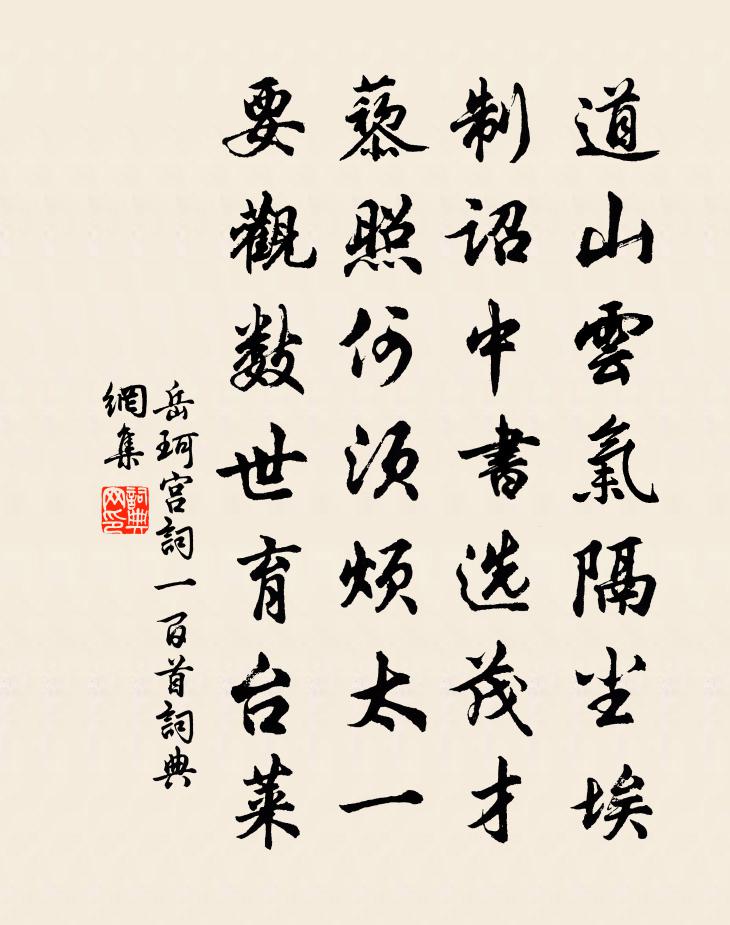 道山雲氣隔尘埃
制詔中書选茂才
藜照何须烦太一
要觀数世育台萊
岳珂宫詞一百首詞典
網集
詞典
网印